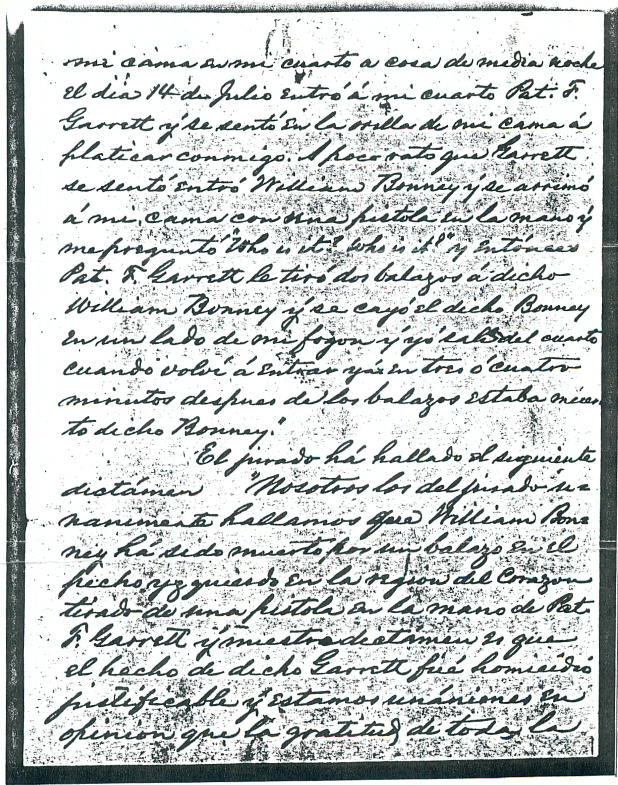 mi cama en mi cuarto a cosa de media noche
el dia 14 de Julio entró á mi cuarto Pat. F.
Garrett y se sentó en la orilla de mi cama á
platicar conmigo. A poco rato que Garrett
se sentó entró William Bonney y se arrimó
á mi cama con una pistola en la mano y
me preguntó "Who is it? Who is it?" y entónces
Pat. F. Garrett le tiró dos balazos á dicho
William Bonney y se cayó el dicho Bonney
en un lado de mi fogon y yó salí del cuarto
cuando volví á entrar ya en tres ó cuatro
minutos despues de los balazos estaba muer-
to dicho Bonney."
El jurado há hallado el siguiente
dictámen "Nosotros los del jurado u-
nanimente hallamos que William Bon-
ney há sido muerto por un balazo en el
pecho yzquierdo en la region del corazon
tirado de una pistola en la mano de Pat.
F. Garrett y nuestro dictamen es que
el hecho de dicho Garrett fué homicidio
justificable y estamos unánimes en
opinion que la gratitud de toda la